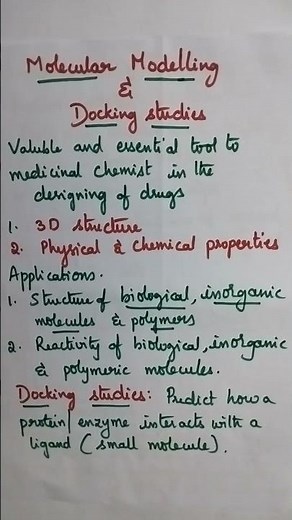 Molecular Modelling
&
Docking studies
Valuble and essential tool to
medicinal chemist in the
designing of drugs
1. 3D structure
2. Physical & Chemical properties
Applications.
1. Structure of biological, inorganic
molecules & polymers
2. Reactivity of biological, inorganic
& polymeric molecules.
Docking studies: Predict how a
protein/enzyme interacts with a
ligand (small molecule).